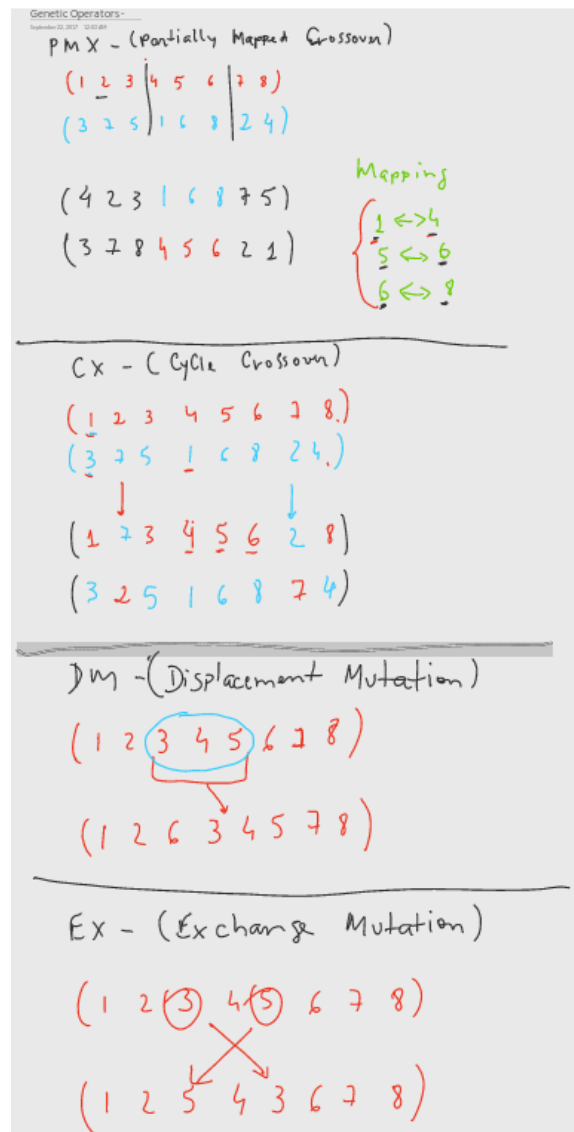 Genetic Operators-
September 22, 2017 12:02 AM
PMX - (Partially Mapped Crossover)
(1 2 3 | 4 5 6 | 7 8)
(3 7 5 | 1 6 8 | 2 4)
(4 2 3 1 6 8 7 5)
(3 7 8 4 5 6 2 1)
Mapping
1 <-> 4
5 <-> 6
6 <-> 8
CX - (Cycle Crossover)
(1 2 3 4 5 6 7 8.)
(3 7 5 1 6 8 2 4.)
(1 7 3 4 5 6 2 8)
(3 2 5 1 6 8 7 4)
DM - (Displacement Mutation)
(1 2 3 4 5 6 7 8)
(1 2 6 3 4 5 7 8)
EX - (Exchange Mutation)
(1 2 3 4 5 6 7 8)
(1 2 5 4 3 6 7 8)